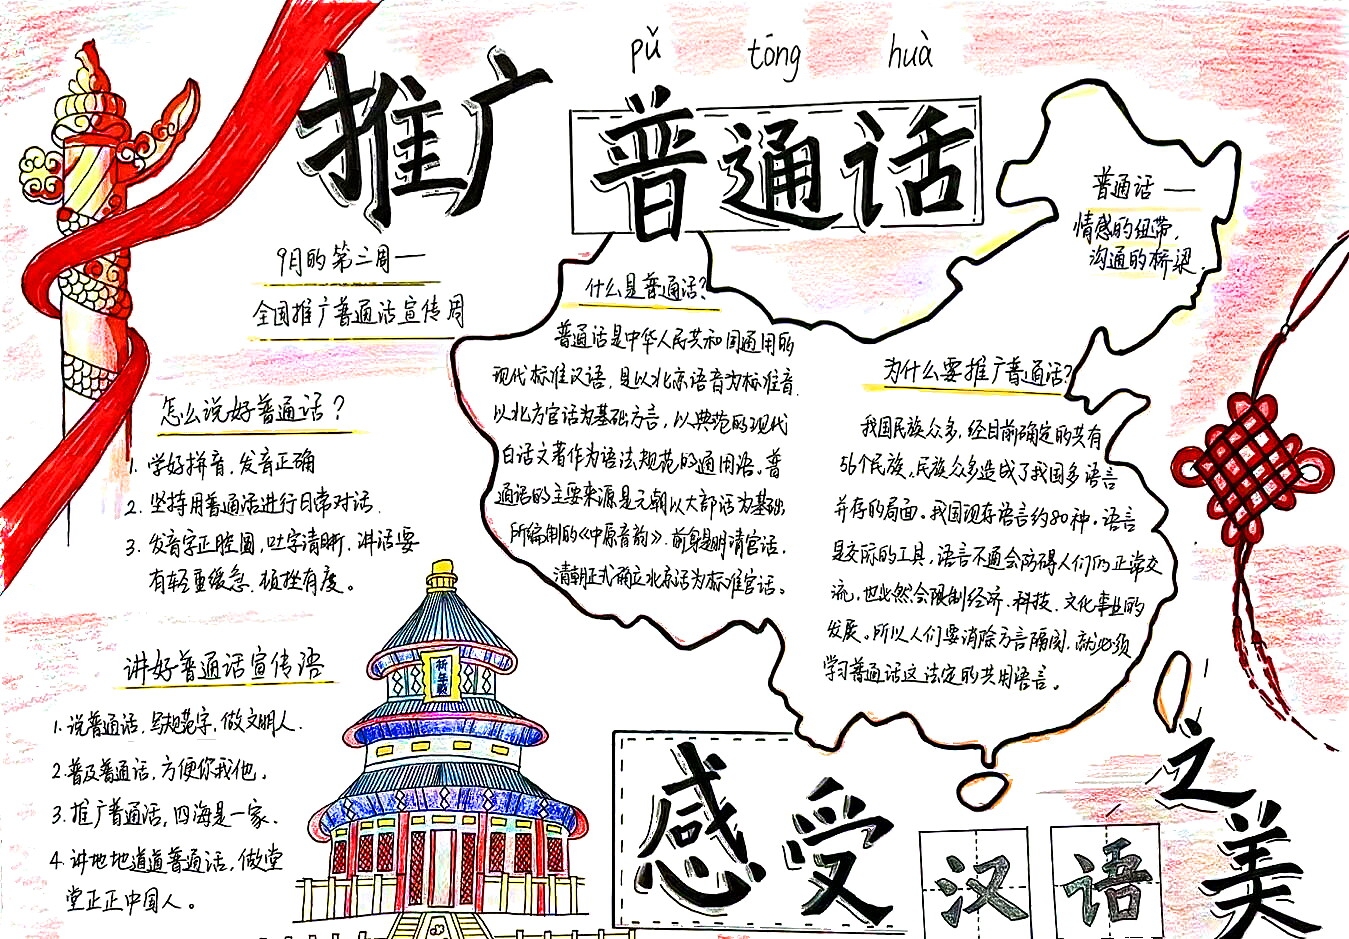 pǔ tōng huà
推广普通话
9月的第三周一
全国推广普通话宣传周
怎么说好普通话？
1. 学好拼音，发音正确
2. 坚持用普通话进行日常对话.
3. 发音字正腔圆，吐字清晰，讲话要
有轻重缓急，顿挫有度。
讲好普通话宣传语
1. 说普通话，写规范字，做文明人.
2.普及普通话，方便你我他。
3.推广普通话，四海是一家.
4.讲地地道道普通话，做堂
堂正正中国人。
祈年殿
什么是普通话?
普通话是中华人民共和国通用的
现代标准汉语，是以北京语音为标准音
以北方官话为基础方言，以典范的现代
白话文著作为语法规范的通用语。普
通话的主要来源是元朝以大都话为基础
所编制的《中原音韵》.前身是明清官话，
清朝正式确立北京话为标准官话。
为什么要推广普通话?
我国民族众多，经目前确定的共有
56个民族。民族众多造成了我国多语言
并存的局面。我国现存语言约80种.语言
是交际的工具，语言不通会防碍人们的正常交
流，也必然会限制经济、科技、文化事业的
发展。所以人们要消除方言隔阂，就必须
学习普通话这法定的共用语言。
普通话一
情感的纽带，
沟通的桥梁.
感受汉语之美